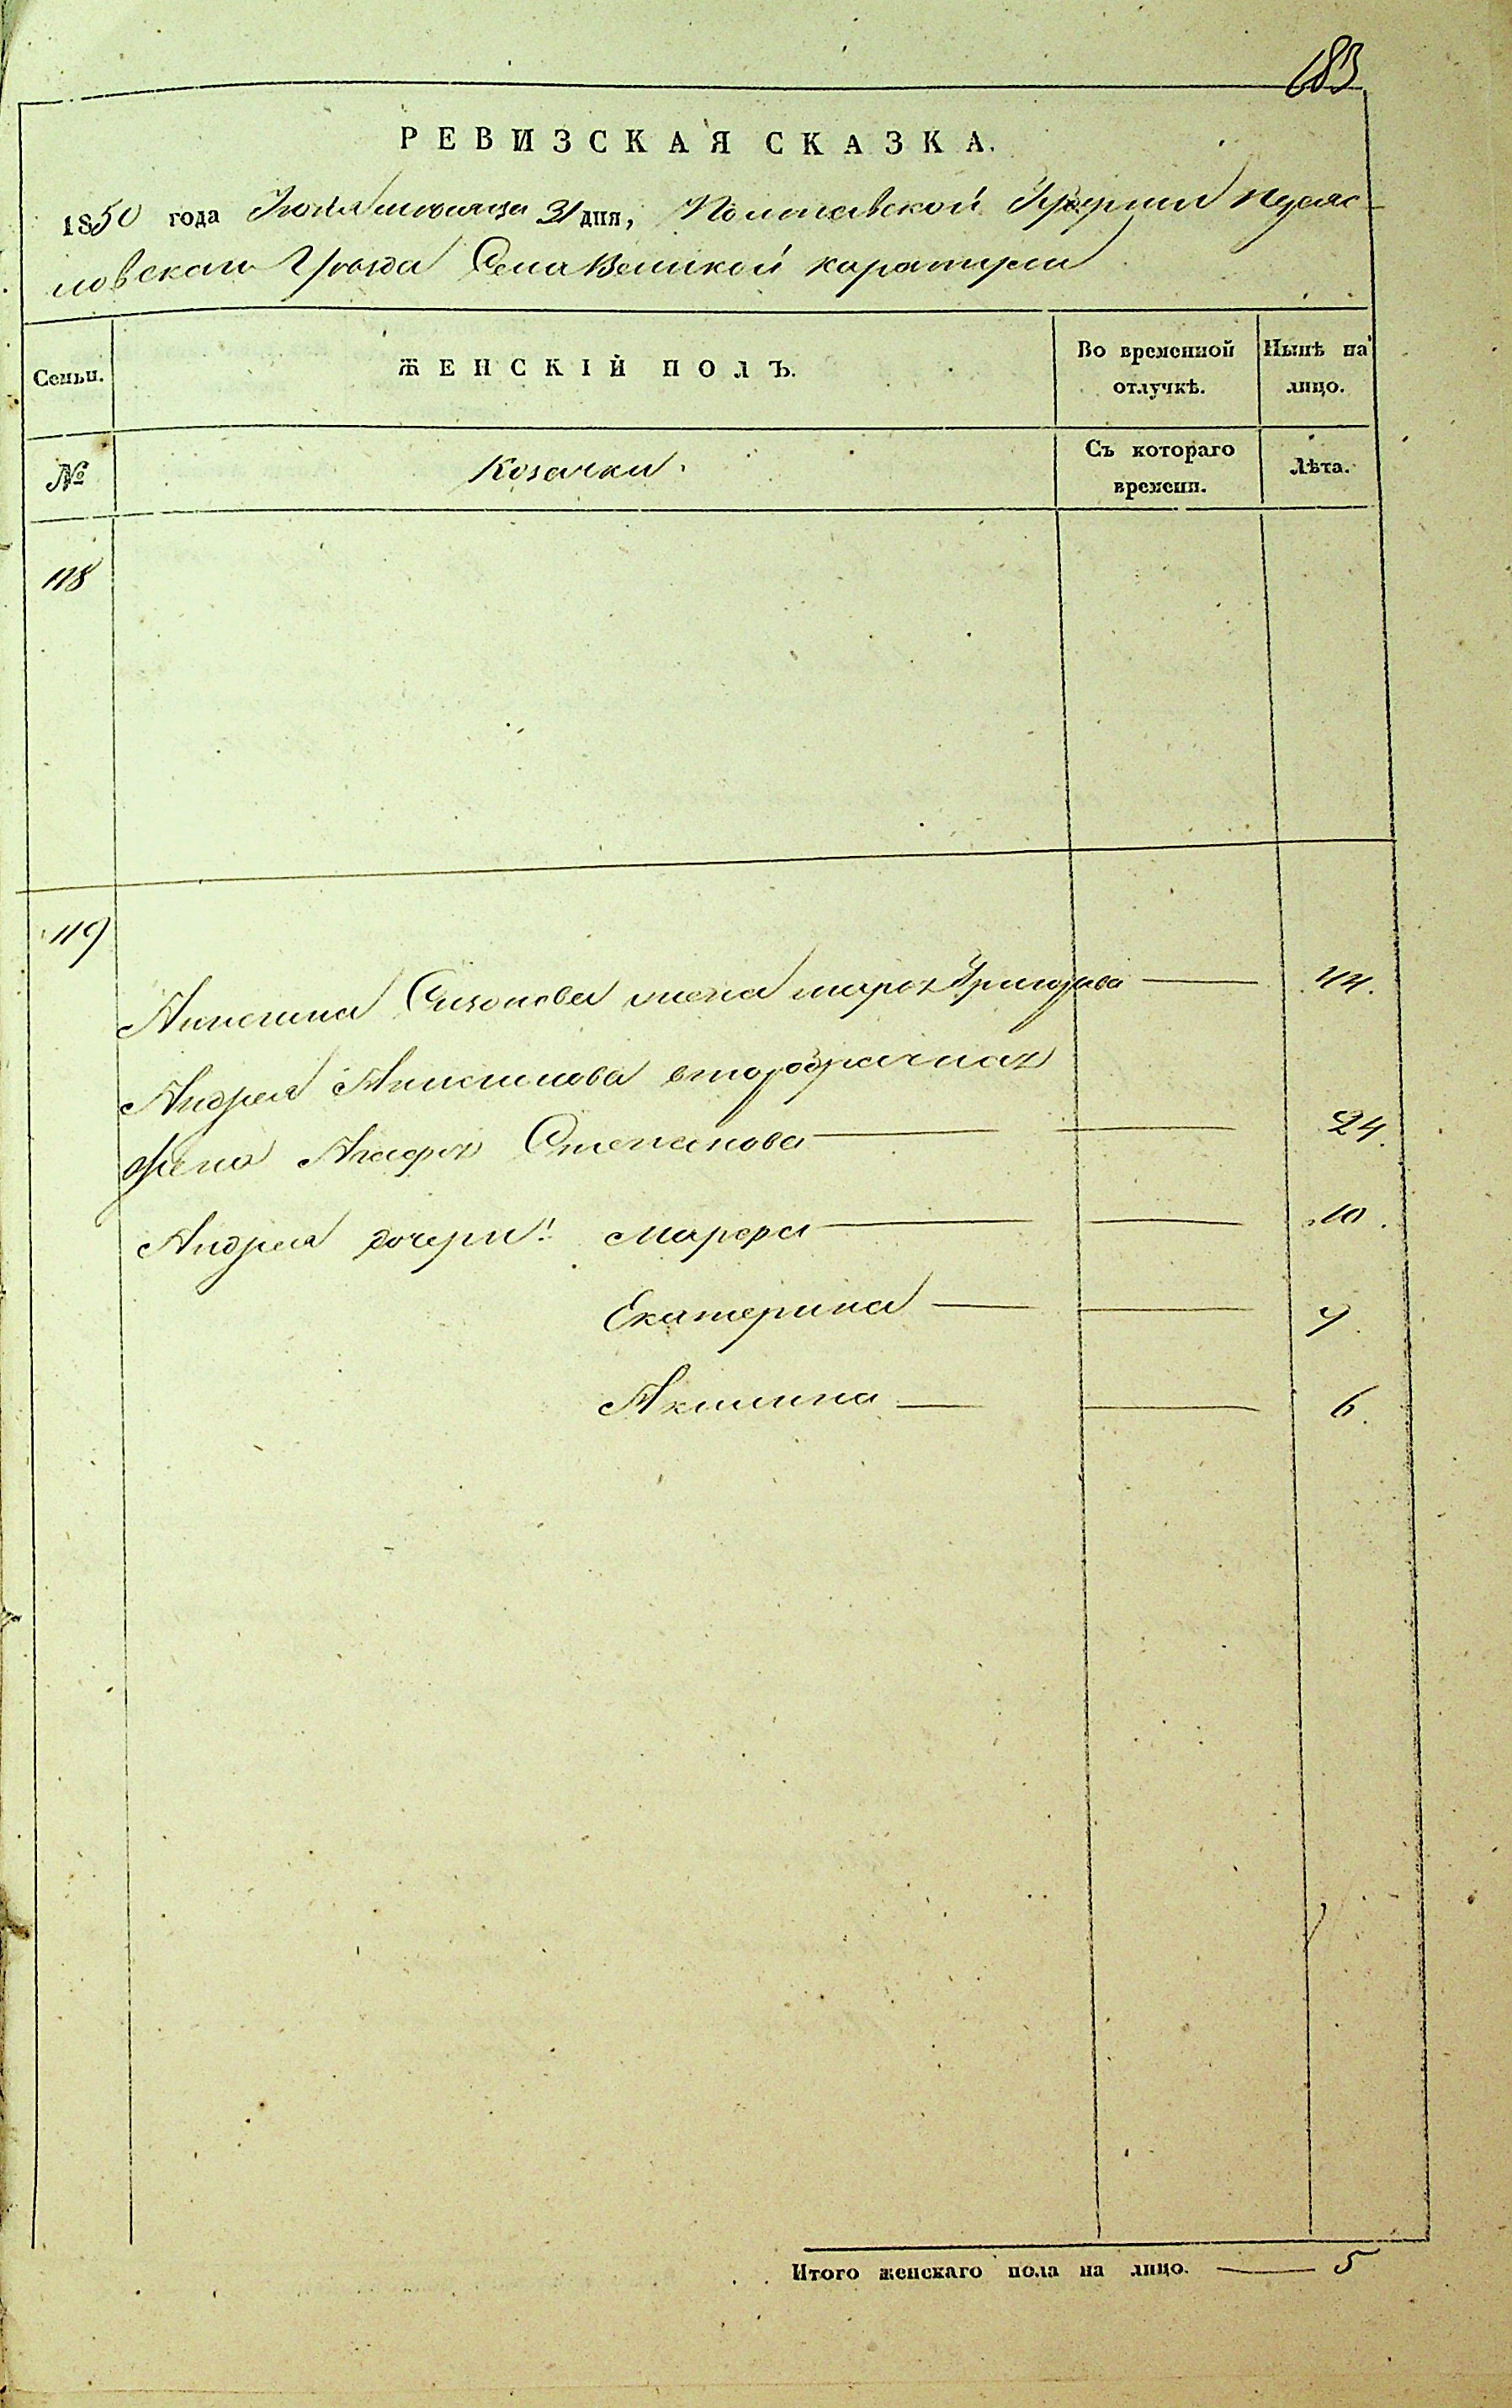 183
РЕВИЗСКАЯ СКАЗКА.
1850 года Июля месяца 31 дня, Полтавской Губернии Переяс-
ловскаго Уезда Села Великой Каратули
Семьи.
ЖЕНСКІЙ ПОЛЪ.
Во временной отлучкѣ.
Нынѣ на лицо.
№
Козачки.
Съ котораго времени.
Лѣта.
118
119
Анисима жена Григорьева — 44.
Андрея Анисимова второбрачная
жена Агафія Степанова — — 24.
Андрея дочери: Марфа — — 10.
Екатерина — —
Акилина — — 6.
Итого женскаго пола на лицо. — 5